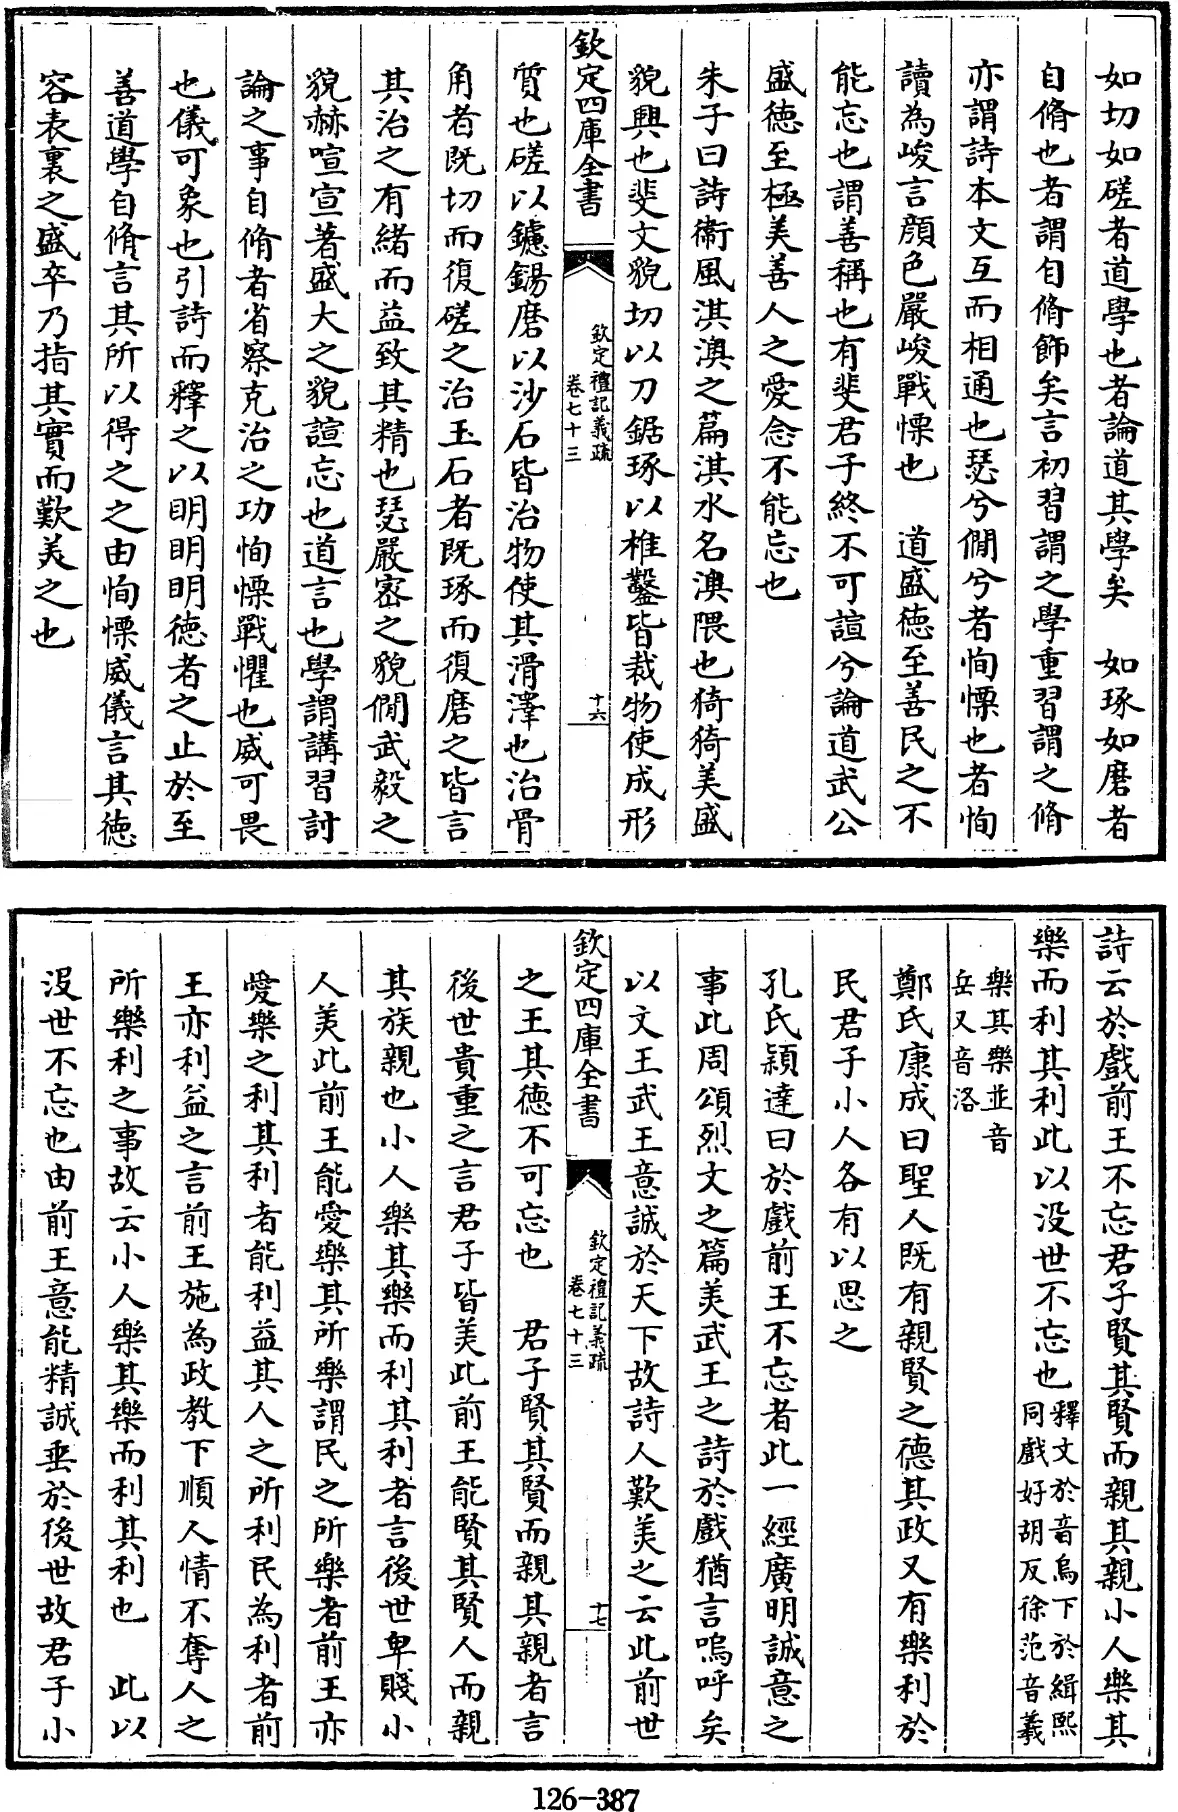 如切如磋者道學也者論道其學矣　如琢如磨者
自脩也者謂自脩飾矣言初習謂之學重習謂之脩
亦謂詩本文互而相通也瑟兮僩兮者恂慄也者恂
讀為峻言顔色嚴峻戰慄也　道盛德至善民之不
能忘也謂善稱也有斐君子終不可諠兮論道武公
盛徳至極美善人之愛念不能忘也
朱子曰詩衞風淇澳之篇淇水名澳隈也猗猗美盛
貌興也斐文貌切以刀鋸琢以椎鑿皆裁物使成形
欽定四庫全書
欽定禮記義疏
卷七十三
十六
質也磋以鑢鐋磨以沙石皆治物使其滑澤也治骨
角者既切而復磋之治玉石者既琢而復磨之皆言
其治之有緒而益致其精也瑟嚴密之貌僩武毅之
貌赫喧宣著盛大之貌諠忘也道言也學謂講習討
論之事自脩者省察克治之功恂慄戰懼也威可畏
也儀可象也引詩而釋之以明明明徳者之止於至
善道學自脩言其所以得之之由恂慄威儀言其徳
容表裏之盛卒乃指其實而歎美之也
詩云於戲前王不忘君子賢其賢而親其親小人樂其
樂而利其利此以没世不忘也釋文於音烏下於緝熙
同戲好胡反徐范音羲
樂其樂並音
岳又音洛
鄭氏康成曰聖人既有親賢之德其政又有樂利於
民君子小人各有以思之
孔氏穎達曰於戲前王不忘者此一經廣明誠意之
事此周頌烈文之篇美武王之詩於戲猶言嗚呼矣
以文王武王意誠於天下故詩人歎美之云此前世
欽定四庫全書
欽定禮記義疏
卷七十三
十七
之王其德不可忘也　君子賢其賢而親其親者言
後世貴重之言君子皆美此前王能賢其賢人而親
其族親也小人樂其樂而利其利者言後世卑賤小
人美此前王能愛樂其所樂謂民之所樂者前王亦
愛樂之利其利者能利益其人之所利民為利者前
王亦利益之言前王施為政教下順人情不奪人之
所樂利之事故云小人樂其樂而利其利也　此以
没世不忘也由前王意能精誠垂於後世故君子小
126-387